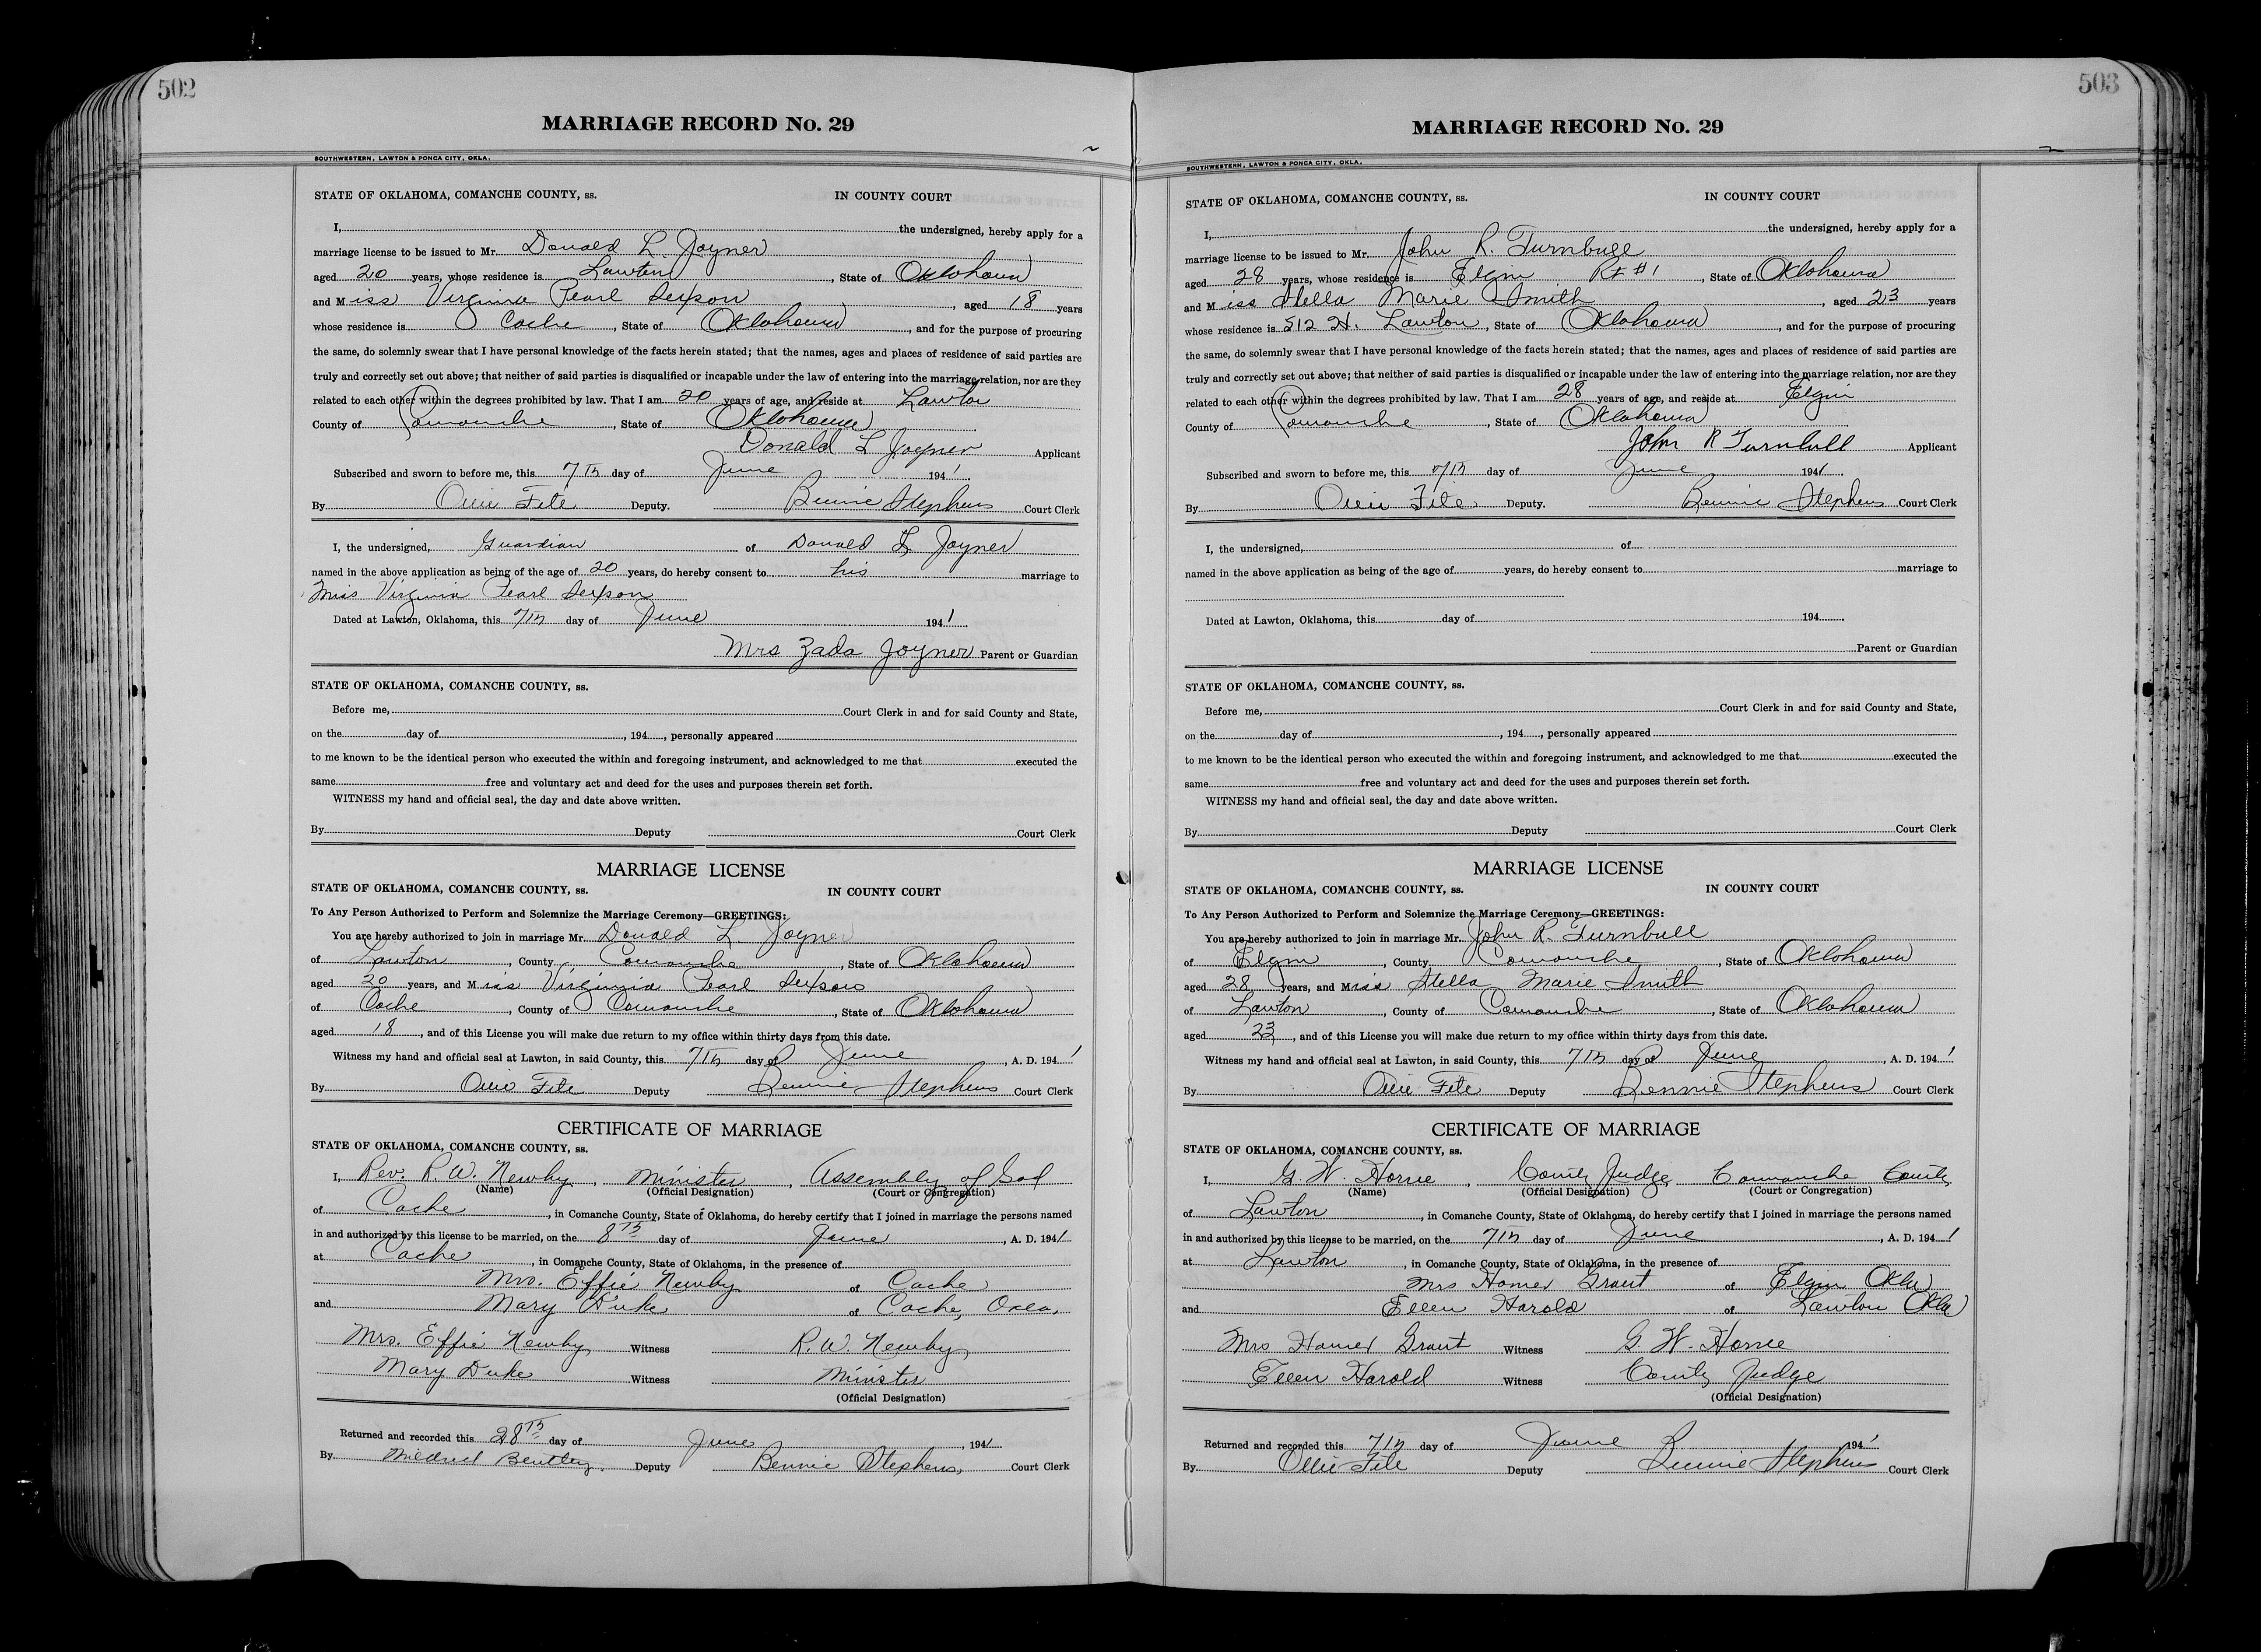 502
MARRIAGE RECORD No. 29
SOUTHWESTERN, LAWTON & PONCA CITY, OKLA.
STATE OF OKLAHOMA, COMANCHE COUNTY, ss. IN COUNTY COURT
I, the undersigned, hereby apply for a
marriage license to be issued to Mr. Donald L. Joyner
aged 20 years, whose residence is Lawton, State of Oklahoma
and Miss Virginia Pearl Sexson, aged 18 years
whose residence is Cache, State of Oklahoma, and for the purpose of procuring
the same, do solemnly swear that I have personal knowledge of the facts herein stated; that the names, ages and places of residence of said parties are
truly and correctly set out above; that neither of said parties is disqualified or incapable under the law of entering into the marriage relation, nor are they
related to each other within the degrees prohibited by law. That I am 20 years of age, and reside at Lawton
County of Comanche, State of Oklahoma
Donald L Joyner Applicant
Subscribed and sworn to before me, this 7th day of June 1941.
By Ollie Fite Deputy. Bennie Stephens Court Clerk
I, the undersigned, Guardian of Donald L Joyner
named in the above application as being of the age of 20 years, do hereby consent to his marriage to
Miss Virginia Pearl Sexson
Dated at Lawton, Oklahoma, this 7th day of June 1941.
Mrs Zada Joyner Parent or Guardian
STATE OF OKLAHOMA, COMANCHE COUNTY, ss.
Before me, Court Clerk in and for said County and State,
on the day of , 194 , personally appeared
to me known to be the identical person who executed the within and foregoing instrument, and acknowledged to me that executed the
same free and voluntary act and deed for the uses and purposes therein set forth.
WITNESS my hand and official seal, the day and date above written.
By Deputy Court Clerk
MARRIAGE LICENSE
STATE OF OKLAHOMA, COMANCHE COUNTY, ss. IN COUNTY COURT
To Any Person Authorized to Perform and Solemnize the Marriage Ceremony—GREETINGS:
You are hereby authorized to join in marriage Mr. Donald L. Joyner
of Lawton, County Comanche, State of Oklahoma
aged 20 years, and Miss Virginia Pearl Sexson
of Cache, County of Comanche, State of Oklahoma
aged 18, and of this License you will make due return to my office within thirty days from this date.
Witness my hand and official seal at Lawton, in said County, this 7th day of June, A. D. 1941
By Ollie Fite Deputy Bennie Stephens Court Clerk
CERTIFICATE OF MARRIAGE
STATE OF OKLAHOMA, COMANCHE COUNTY, ss.
I, Rev. R. W. Newby, Minister, Assembly of God
(Name) (Official Designation) (Court or Congregation)
of Cache, in Comanche County, State of Oklahoma, do hereby certify that I joined in marriage the persons named
in and authorized by this license to be married, on the 8th day of June, A. D. 1941
at Cache, in Comanche County, State of Oklahoma, in the presence of
Mrs. Effie Newby of Cache
and Mary Duke of Cache, Okla.
Mrs. Effie Newby Witness R. W. Newby
Mary Duke Witness Minister
(Official Designation)
Returned and recorded this 28th day of June, 1941
By Mildred Bentley. Deputy Bennie Stephens, Court Clerk
503
MARRIAGE RECORD No. 29
SOUTHWESTERN, LAWTON & PONCA CITY, OKLA.
STATE OF OKLAHOMA, COMANCHE COUNTY, ss. IN COUNTY COURT
I, the undersigned, hereby apply for a
marriage license to be issued to Mr. John R. Turnbull
aged 28 years, whose residence is Elgin Rt #1, State of Oklahoma
and Miss Stella Marie Smith, aged 23 years
whose residence is 512 H. Lawton, State of Oklahoma, and for the purpose of procuring
the same, do solemnly swear that I have personal knowledge of the facts herein stated; that the names, ages and places of residence of said parties are
truly and correctly set out above; that neither of said parties is disqualified or incapable under the law of entering into the marriage relation, nor are they
related to each other within the degrees prohibited by law. That I am 28 years of age, and reside at Elgin
County of Comanche, State of Oklahoma
John R Turnbull Applicant
Subscribed and sworn to before me, this 7th day of June 1941.
By Ollie Fite Deputy. Bennie Stephens Court Clerk
I, the undersigned, of
named in the above application as being of the age of years, do hereby consent to marriage to
Dated at Lawton, Oklahoma, this day of 194
Parent or Guardian
STATE OF OKLAHOMA, COMANCHE COUNTY, ss.
Before me, Court Clerk in and for said County and State,
on the day of , 194 , personally appeared
to me known to be the identical person who executed the within and foregoing instrument, and acknowledged to me that executed the
same free and voluntary act and deed for the uses and purposes therein set forth.
WITNESS my hand and official seal, the day and date above written.
By Deputy Court Clerk
MARRIAGE LICENSE
STATE OF OKLAHOMA, COMANCHE COUNTY, ss. IN COUNTY COURT
To Any Person Authorized to Perform and Solemnize the Marriage Ceremony—GREETINGS:
You are hereby authorized to join in marriage Mr. John R. Turnbull
of Elgin, County Comanche, State of Oklahoma
aged 28 years, and Miss Stella Marie Smith
of Lawton, County of Comanche, State of Oklahoma
aged 23, and of this License you will make due return to my office within thirty days from this date.
Witness my hand and official seal at Lawton, in said County, this 7th day of June, A. D. 1941
By Ollie Fite Deputy Bennie Stephens Court Clerk
CERTIFICATE OF MARRIAGE
STATE OF OKLAHOMA, COMANCHE COUNTY, ss.
I, G. W. Horne, County Judge Comanche County
(Name) (Official Designation) (Court or Congregation)
of Lawton, in Comanche County, State of Oklahoma, do hereby certify that I joined in marriage the persons named
in and authorized by this license to be married, on the 7th day of June, A. D. 1941
at Lawton, in Comanche County, State of Oklahoma, in the presence of
Mrs Homer Grant of Elgin Okla
and Ellen Harold of Lawton Okla
Mrs Homer Grant Witness G. W. Horne
Ellen Harold Witness County Judge
(Official Designation)
Returned and recorded this 7th day of June 1941
By Ollie Fite Deputy Bennie Stephens Court Clerk